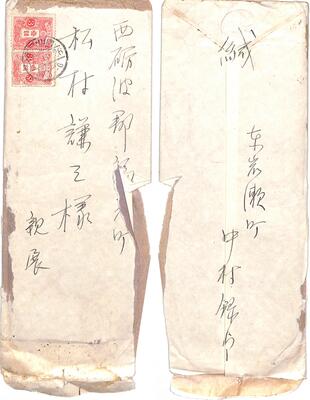 西砺波郡福光町
松村謙三様
親展
緘
東岩瀬町
中村